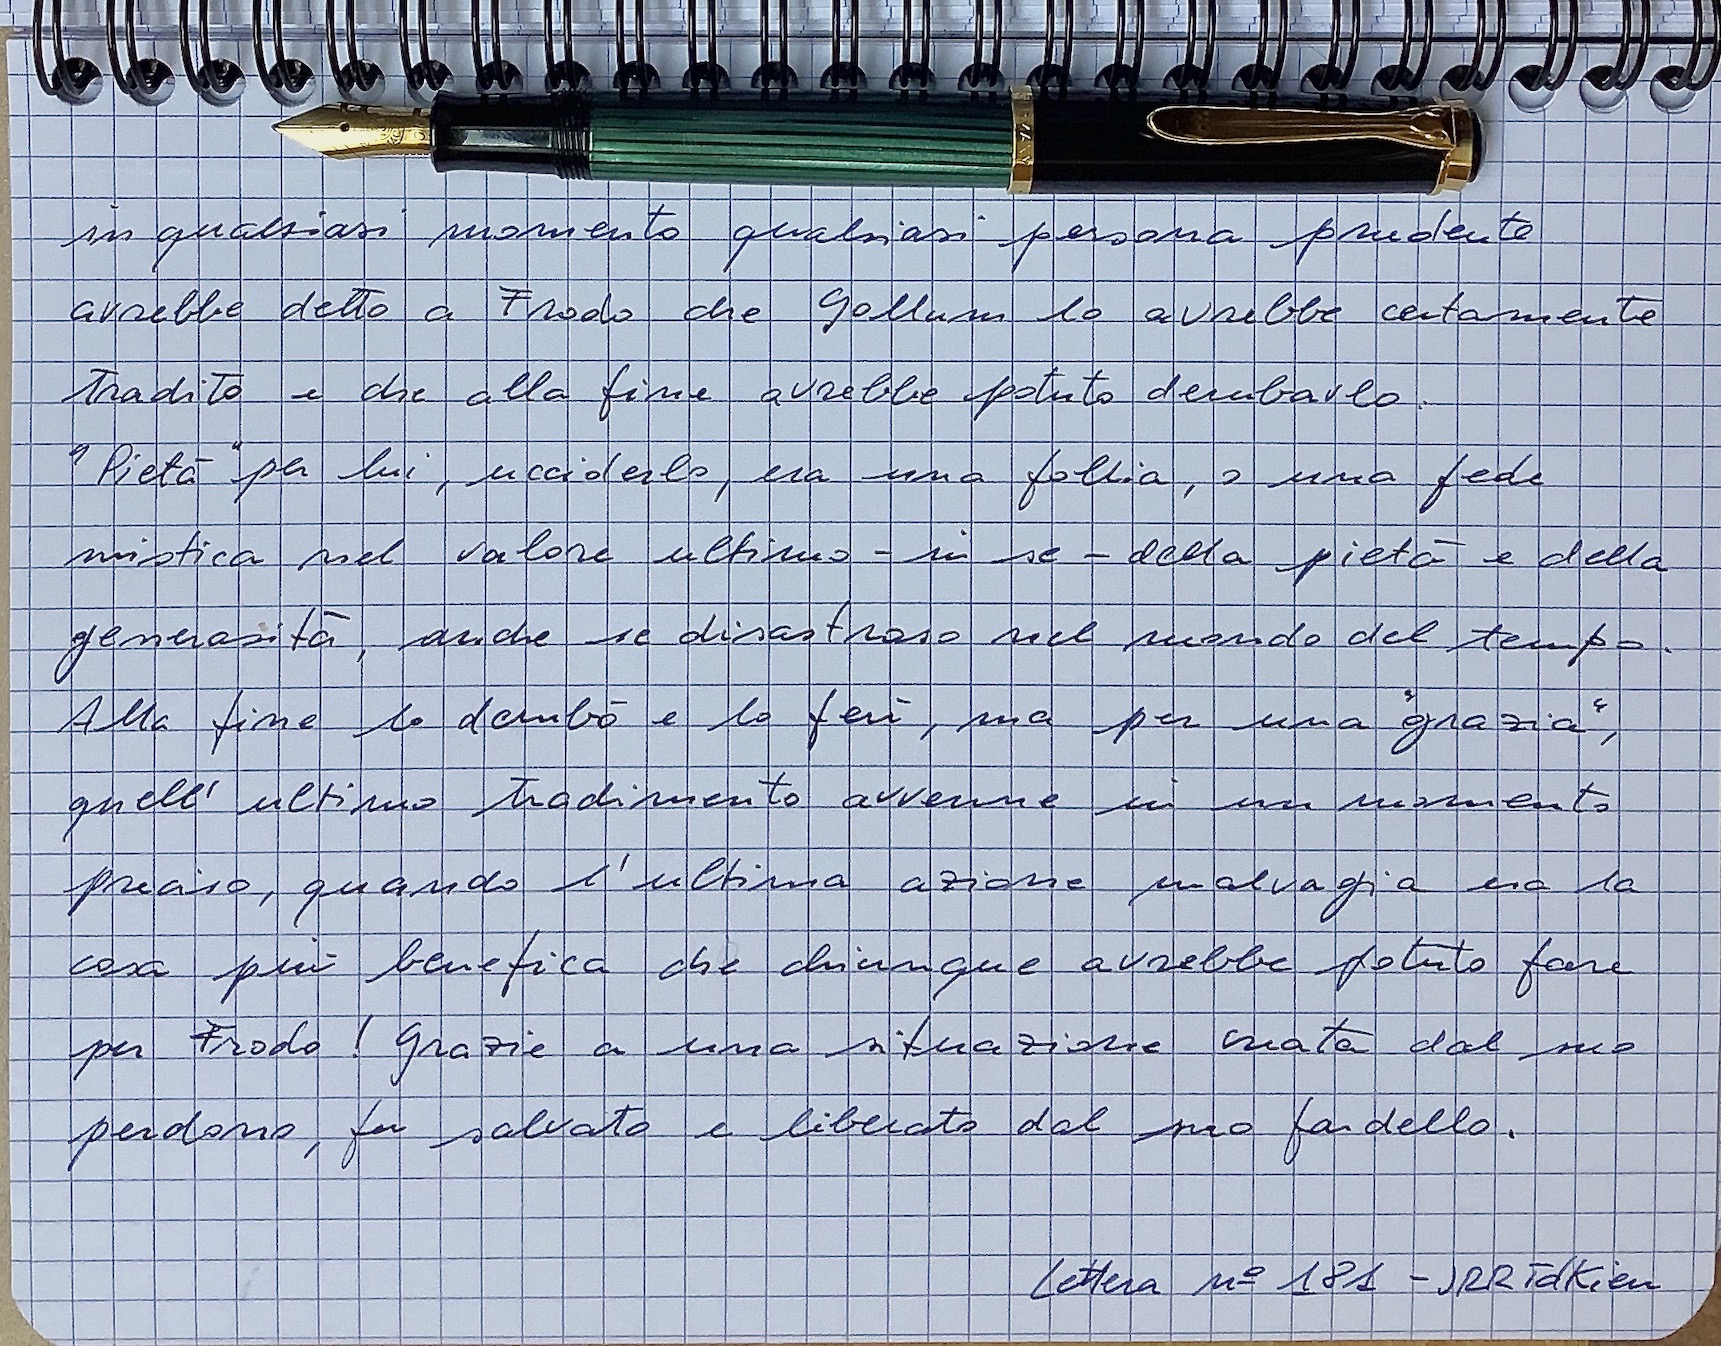 in qualsiasi momento qualsiasi persona prudente
avrebbe detto a Frodo che Gollum lo avrebbe certamente
tradito e che alla fine avrebbe potuto derubarlo.
"Pietà" per lui, ucciderlo, era una follia, o una fede
mistica nel valore ultimo - in se - della pietà e della
generosità, anche se disastroso nel mondo del tempo.
Alla fine lo derubò e lo ferì, ma per una "grazia",
quell'ultimo tradimento avvenne in un momento
preciso, quando l'ultima azione malvagia era la
cosa più benefica che chiunque avrebbe potuto fare
per Frodo! Grazie a una situazione creata dal suo
perdono, fu salvato e liberato dal suo fardello.
Lettera nº 181 - JRRTolkien